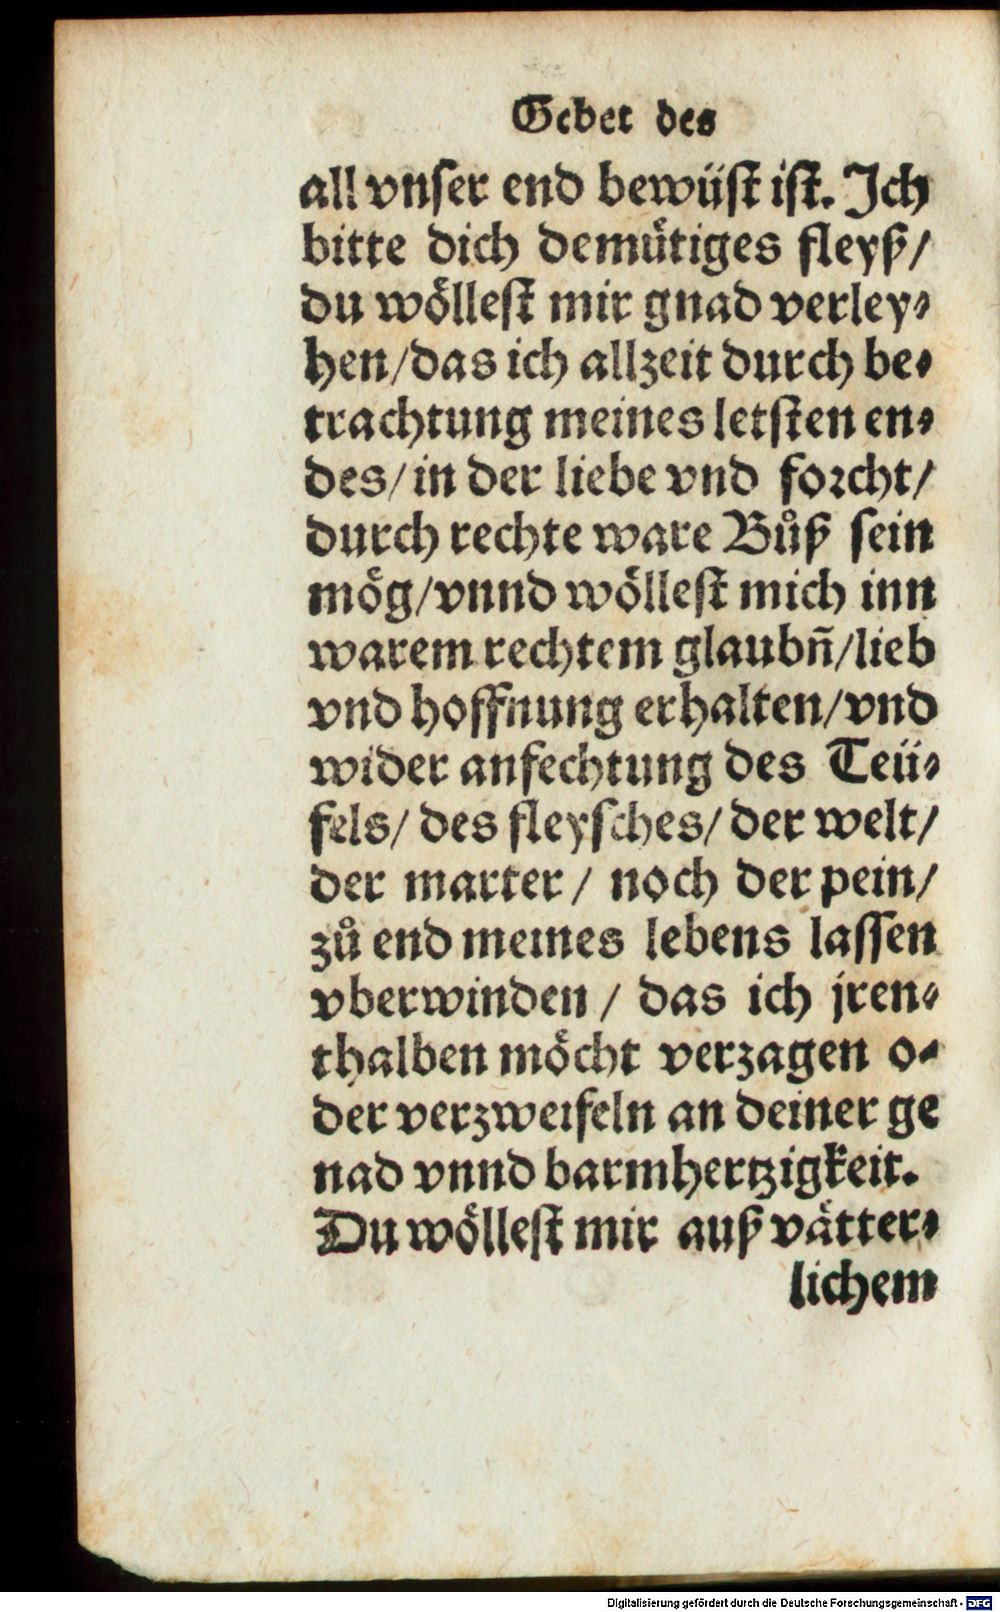 Gebet des
all vnser end bewüst ist. Ich
bitte dich demuͤtiges fleyß/
du woͤllest mir gnad verley⸗
hen/das ich allzeit durch be⸗
trachtung meines letsten en⸗
des/in der liebe vnd forcht/
durch rechte ware Buͦß sein
moͤg/vnnd woͤllest mich inn
warem rechtem glaubn̄/lieb
vnd hoffnung erhalten/vnd
wider anfechtung des Teü⸗
fels/ des fleysches/ der welt/
der marter/ noch der pein/
zuͦ end meines lebens lassen
vberwinden/ das ich jren⸗
thalben moͤcht verzagen o⸗
der verzweifeln an deiner ge
nad vnnd barmhertzigkeit.
Du woͤllest mir auß vaͤtter⸗
lichem
Digitalisierung gefördert durch die Deutsche Forschungsgemeinschaft - DFG